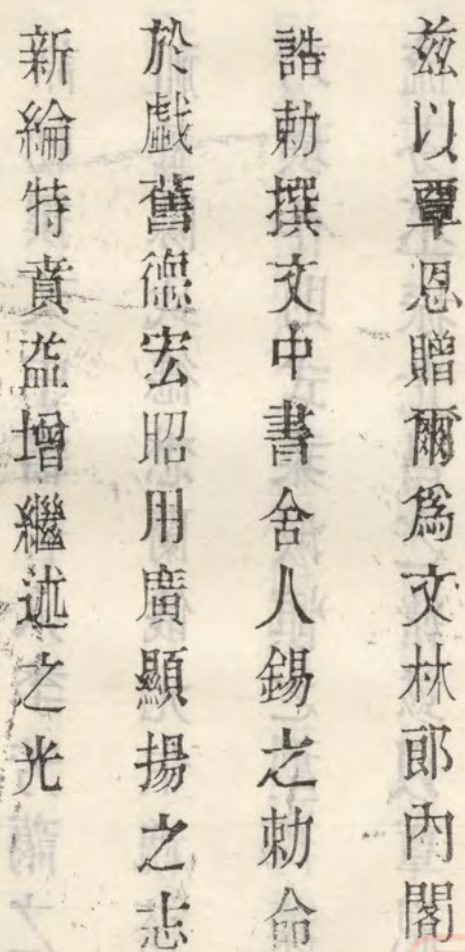 茲以覃恩贈爾爲文林郎內閣
誥勅撰文中書舍人錫之勅命
於戲舊德宏昭用廣顯揚之志
新綸特賁益增繼述之光